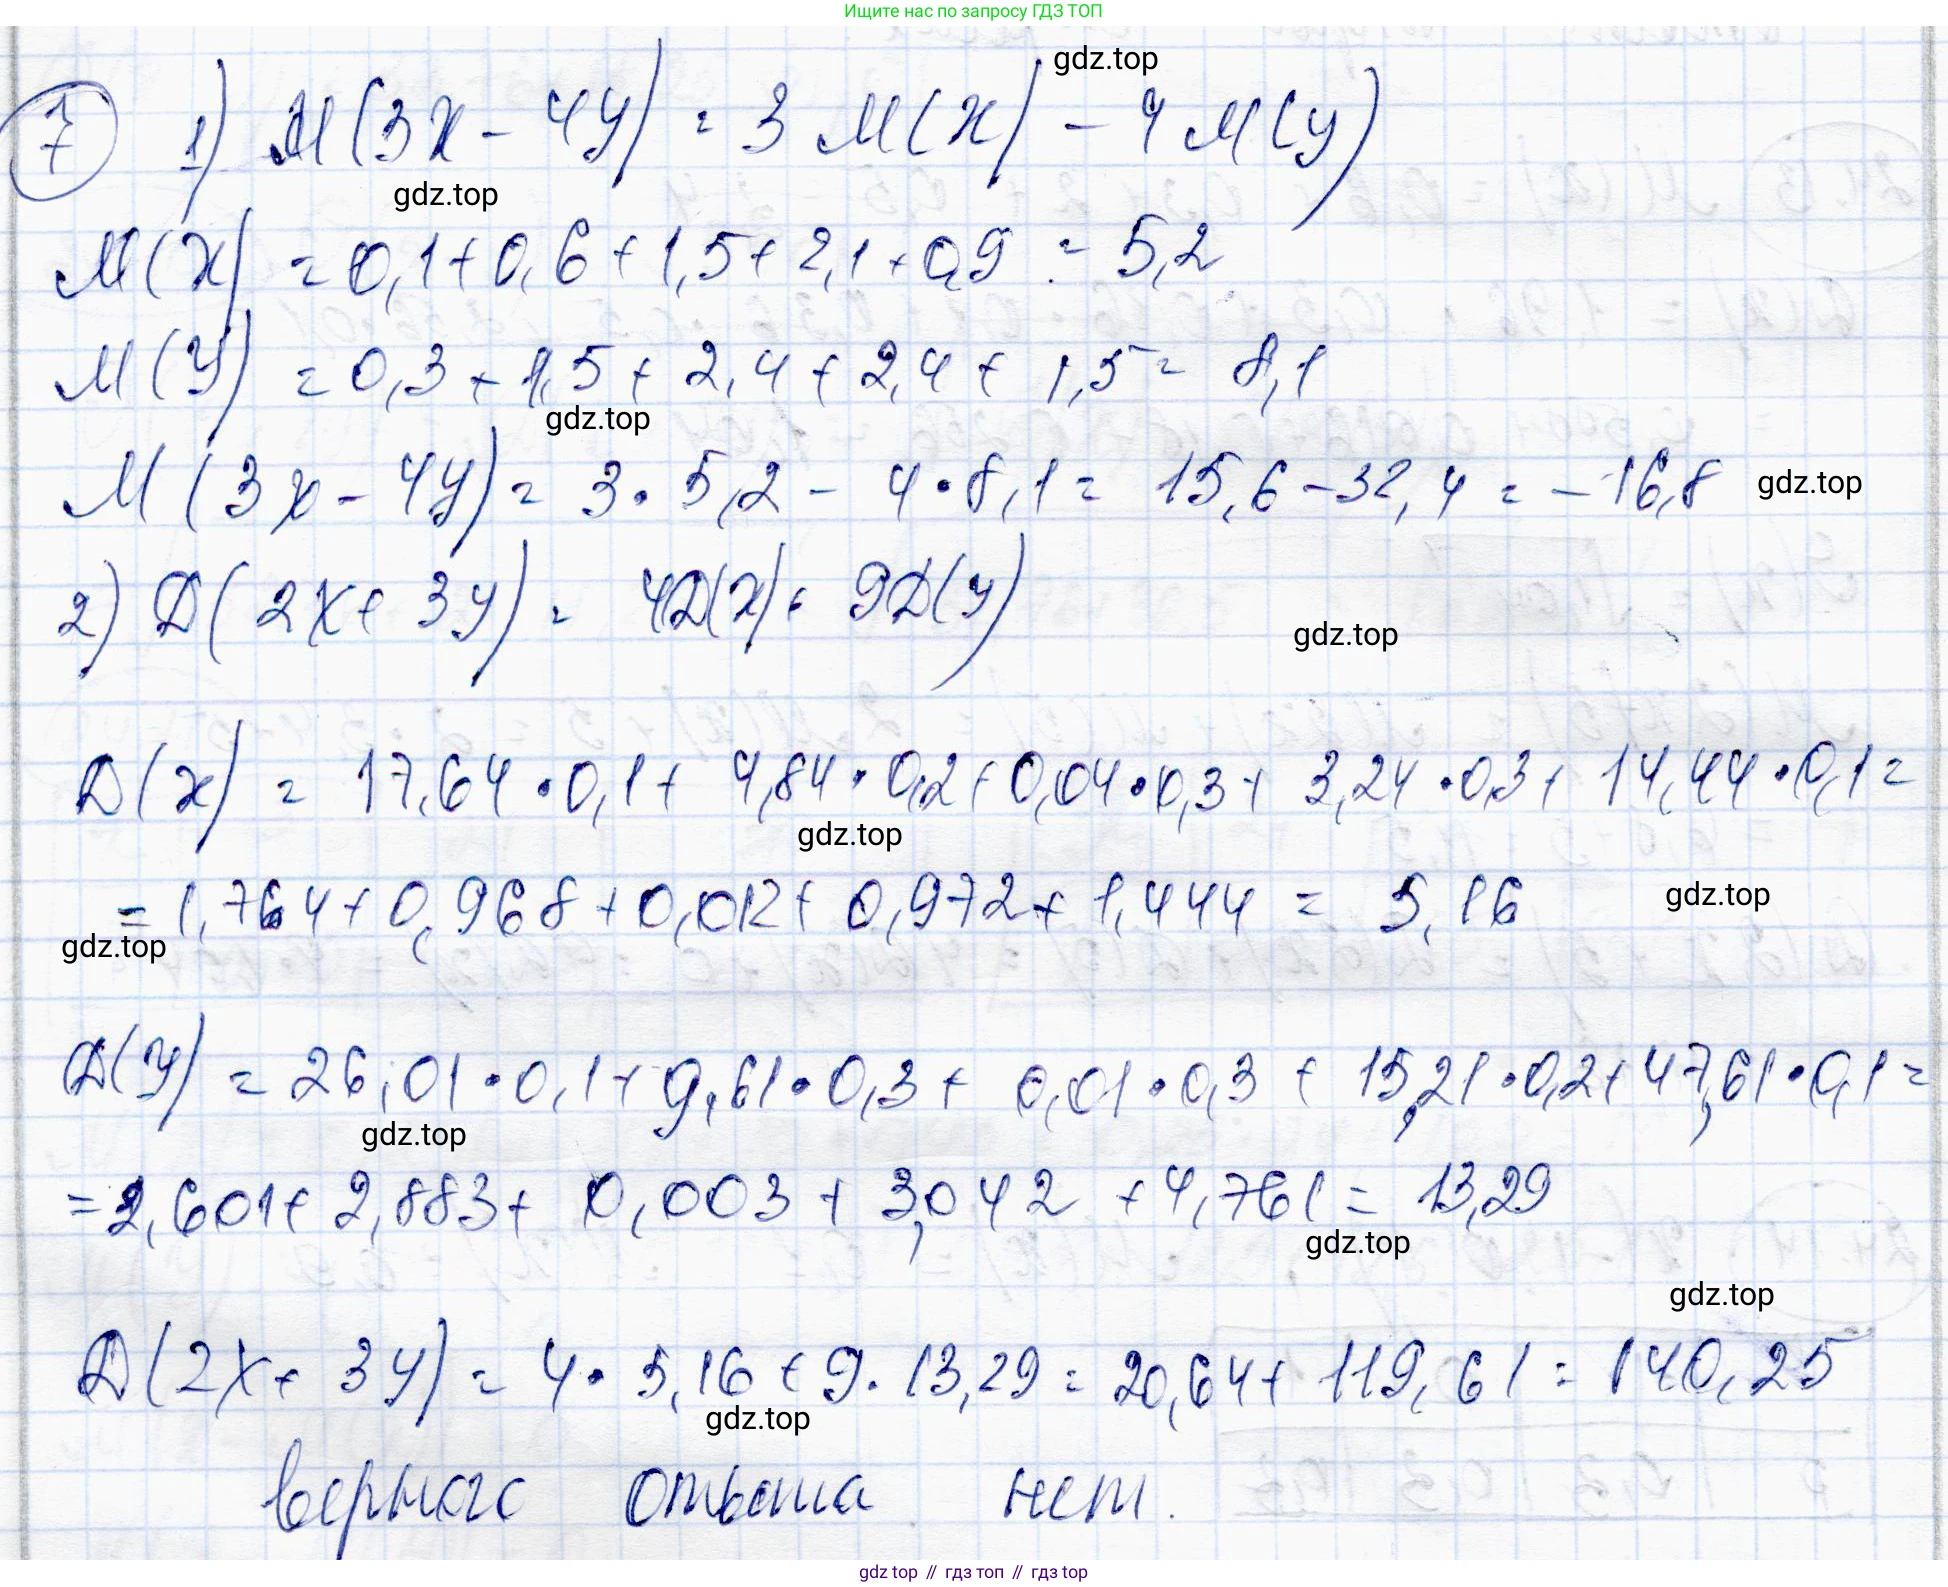 Ищите нас по запросу ГДЗ ТОП
gdz.top
7 1) М(3X - 4Y) = 3 М(X) - 4 М(Y)
gdz.top
М(X) = 0,1 + 0,6 + 1,5 + 2,1 + 0,9 = 5,2
М(Y) = 0,3 + 1,5 + 2,4 + 2,4 + 1,5 = 8,1
gdz.top
М(3X - 4Y) = 3 · 5,2 - 4 · 8,1 = 15,6 - 32,4 = -16,8 gdz.top
2) D(2X + 3Y) = 4D(X) + 9D(Y)
gdz.top
D(X) = 17,64 · 0,1 + 4,84 · 0,2 + 0,04 · 0,3 + 3,24 · 0,3 + 14,44 · 0,1 =
gdz.top
= 1,764 + 0,968 + 0,012 + 0,972 + 1,444 = 5,16 gdz.top
gdz.top
D(Y) = 26,01 · 0,1 + 9,61 · 0,3 + 0,01 · 0,3 + 15,21 · 0,2 + 47,61 · 0,1 =
gdz.top
= 2,601 + 2,883 + 0,003 + 3,042 + 4,761 = 13,29
gdz.top
gdz.top
D(2X + 3Y) = 4 · 5,16 + 9 · 13,29 = 20,64 + 119,61 = 140,25
gdz.top
верного ответа нет.
gdz top // гдз топ // gdz top